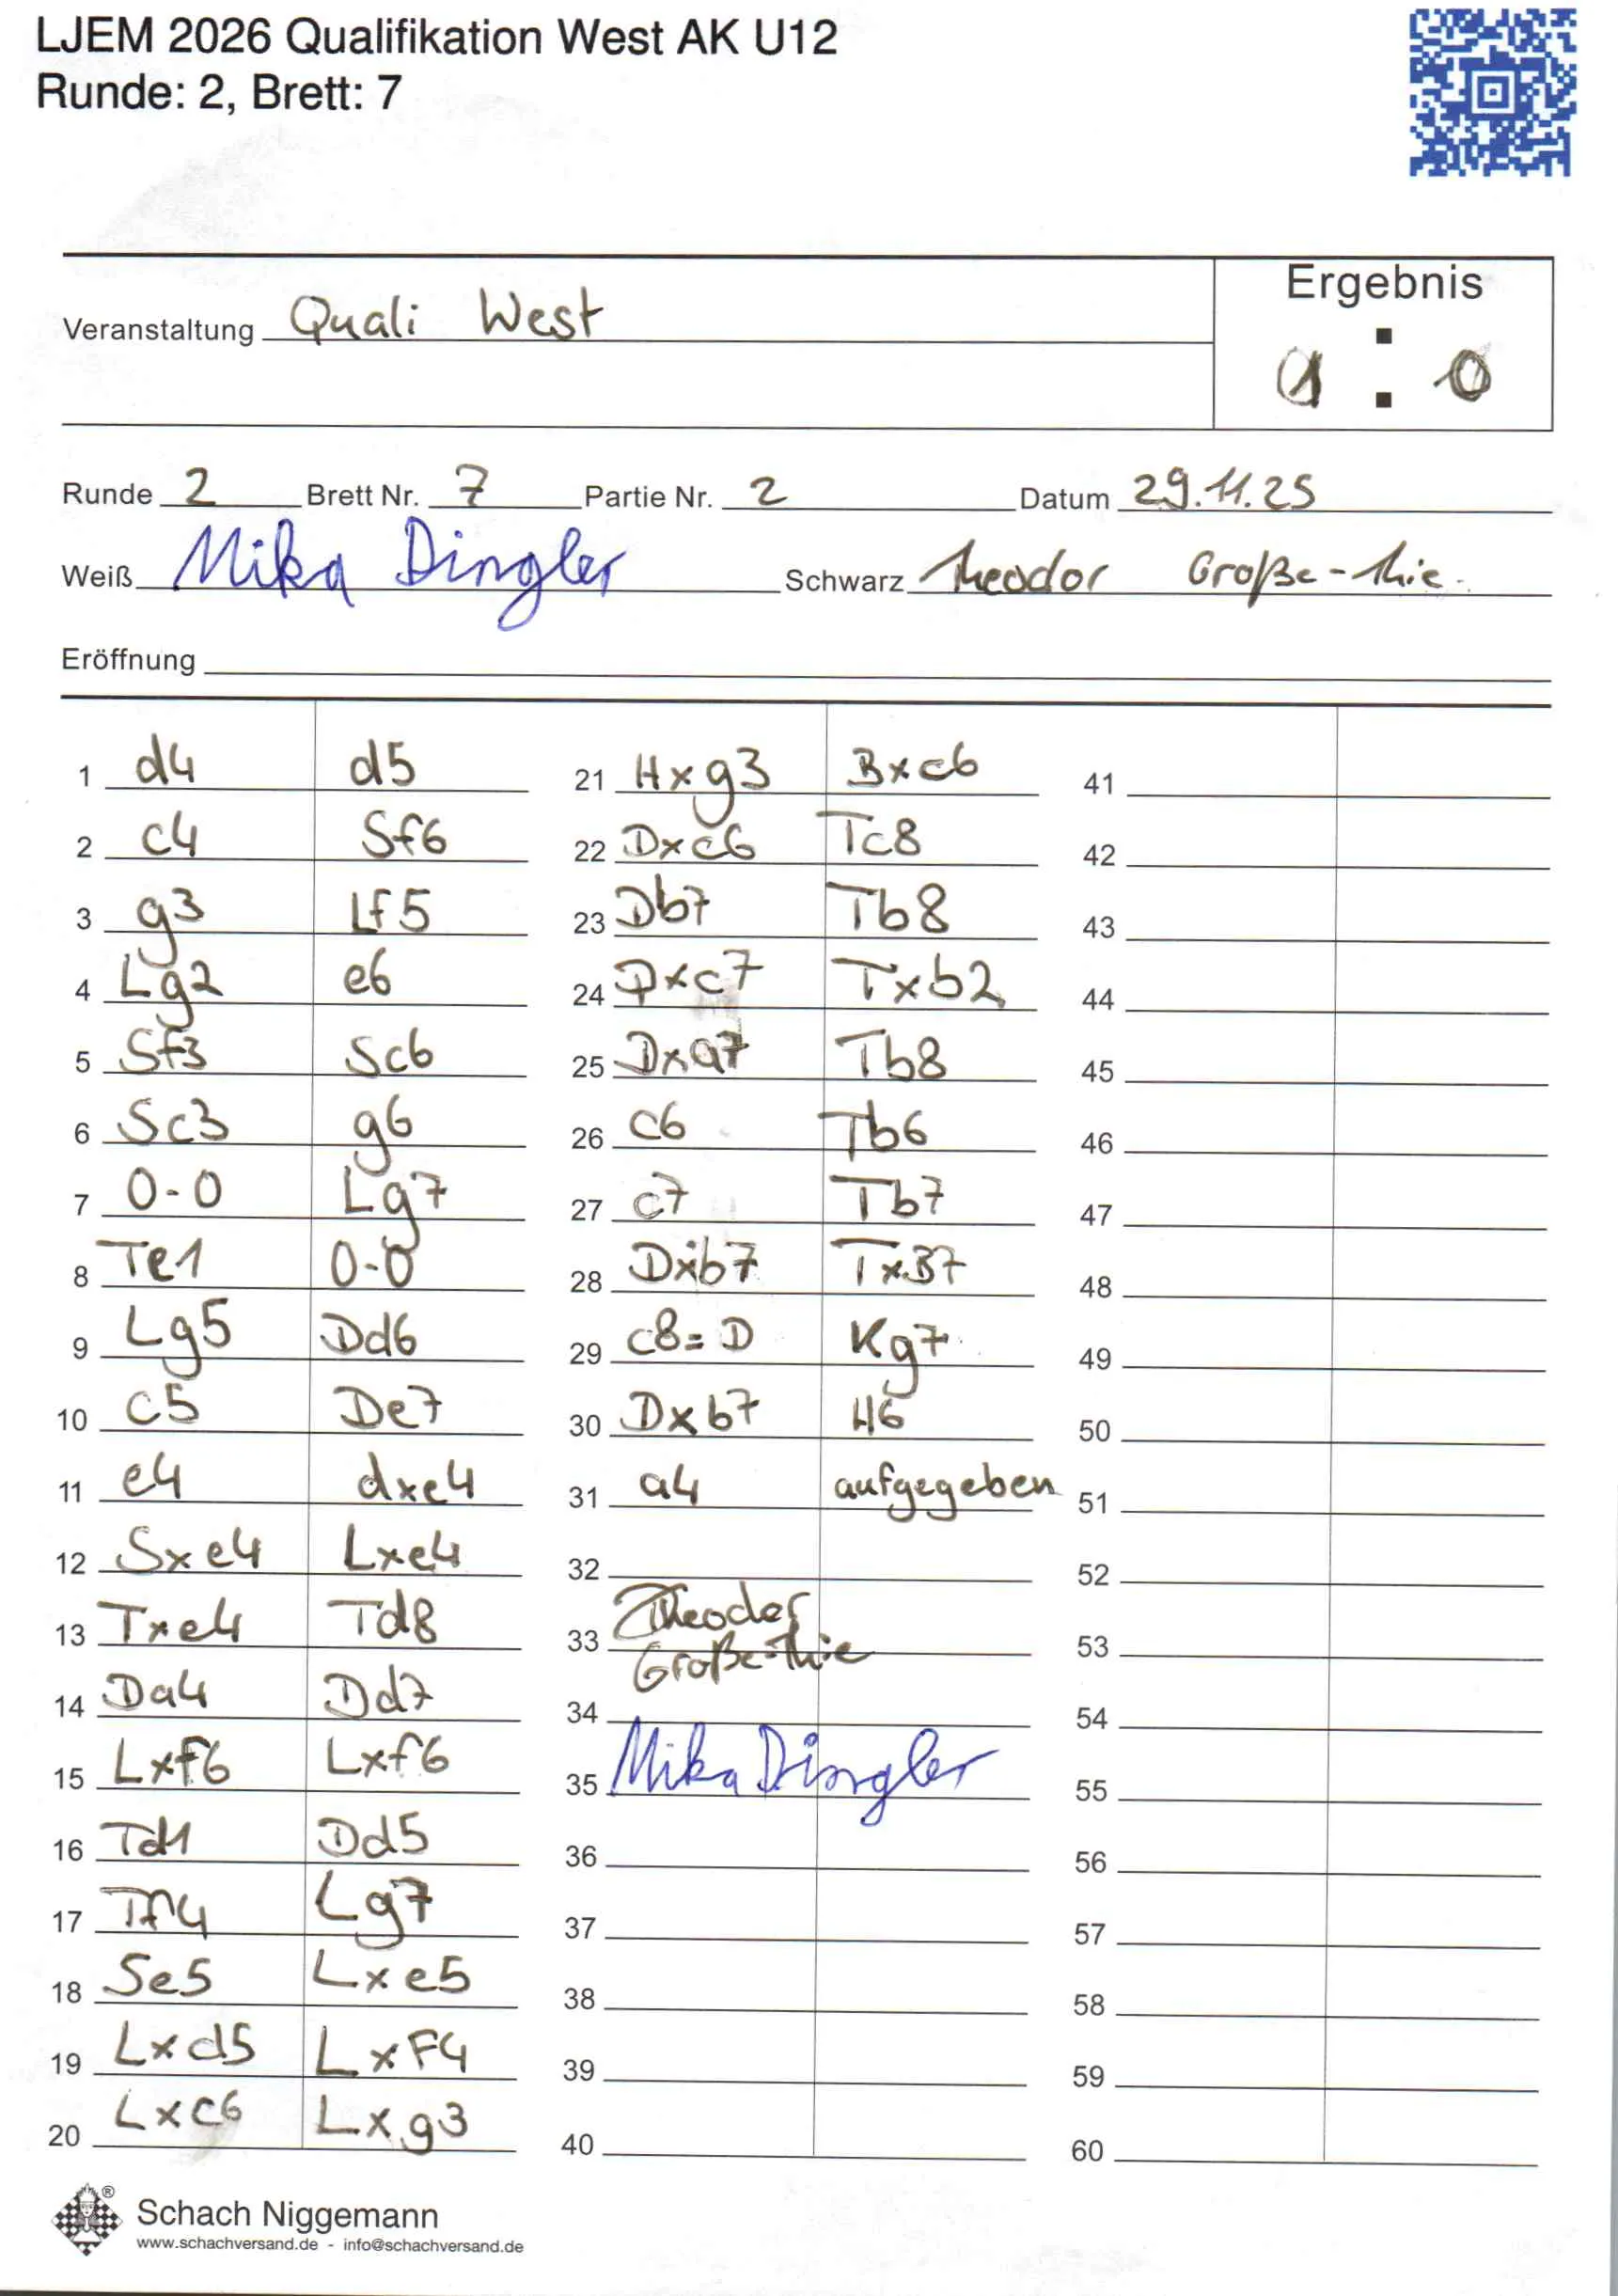 LJEM 2026 Qualifikation West AK U12
Runde: 2, Brett: 7
Ergebnis
Veranstaltung Quali West
1 : 0
Runde 2 Brett Nr. 7 Partie Nr. 2 Datum 29.11.25
Weiß Mika Dingler Schwarz Theodor Große-Thie.
Eröffnung
1 d4 d5
2 c4 Sf6
3 g3 Lf5
4 Lg2 e6
5 Sf3 Sc6
6 Sc3 g6
7 0-0 Lg7
8 Te1 0-0
9 Lg5 Dd6
10 c5 De7
11 e4 dxe4
12 Sxe4 Lxe4
13 Txe4 Td8
14 Da4 Dd7
15 Lxf6 Lxf6
16 Td1 Dd5
17 Tf4 Lg7
18 Se5 Lxe5
19 Lxd5 LxF4
20 Lxc6 Lxg3
21 Hxg3 Bxc6
22 Dxc6 Tc8
23 Db7 Tb8
24 Dxc7 Txb2
25 Dxa7 Tb8
26 c6 Tb6
27 c7 Tb7
28 Dxb7 TxB7
29 c8=D Kg7
30 Dxb7 H6
31 a4 aufgegeben
32
33 Theodor
Große-Thie
34
35 Mika Dingler
36
37
38
39
40
41
42
43
44
45
46
47
48
49
50
51
52
53
54
55
56
57
58
59
60
Schach Niggemann
www.schachversand.de - info@schachversand.de